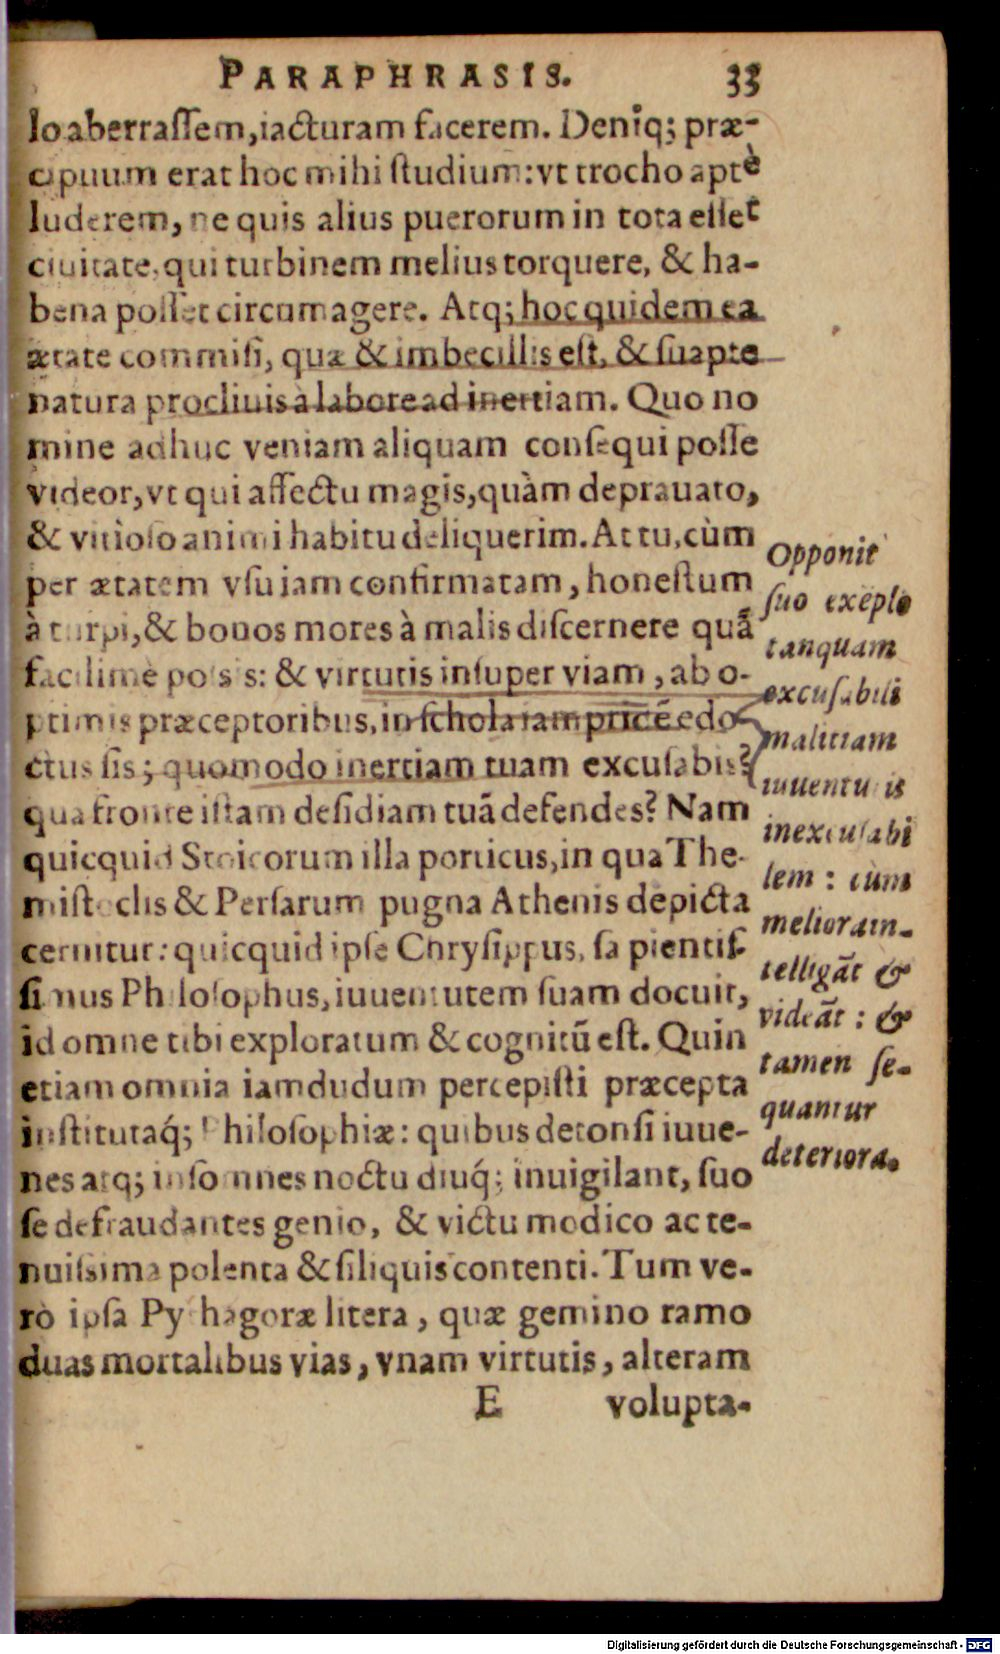 PARAPHRASIS. 33
lo aberraſſem, iacturam facerem. Deniq; præ-
cipuum erat hoc mihi ſtudium: vt trocho aptè
luderem, ne quis alius puerorum in tota eſſet
ciuitate, qui turbinem melius torquere, & ha-
bena poſſet circumagere. Atq; hoc quidem ea
ætate commiſi, quæ & imbecillis eſt, & ſuapte
natura procliuis à labore ad inertiam. Quo no
mine adhuc veniam aliquam conſequi poſſe
videor, vt qui affectu magis, quàm deprauato,
& vitioſo animi habitu deliquerim. At tu, cùm
per ætatem vſu iam confirmatam, honeſtum
à turpi, & bonos mores à malis diſcernere quã
facilimè poſsis: & virtutis inſuper viam, ab o-
ptimis præceptoribus, in ſchola iam pridẽ edo
ctus ſis; quomodo inertiam tuam excuſabis?
qua fronte iſtam deſidiam tuã defendes? Nam
quicquid Stoicorum illa porticus, in qua The-
miſtoclis & Perſarum pugna Athenis depicta
cernitur: quicquid ipſe Chryſippus, ſapientiſ-
ſimus Philoſophus, iuuentutem ſuam docuit,
id omne tibi exploratum & cognitũ eſt. Quin
etiam omnia iamdudum percepiſti præcepta
inſtitutaq́; Philoſophiæ: quibus detonſi iuue-
nes atq; inſomnes noctu diuq́; inuigilant, ſuo
ſe defraudantes genio, & victu modico ac te-
nuiſsima polenta & ſiliquis contenti. Tum ve-
rò ipſa Pythagoræ litera, quæ gemino ramo
duas mortalibus vias, vnam virtutis, alteram
E volupta-
Opponit
ſuo exẽplo
tanquam
excuſabili
malitiam
iuuentutis
inexcuſabi
lem: cùm
meliora in-
telligãt &
videãt: &
tamen ſe-
quantur
deteriora.
Digitalisierung gefördert durch die Deutsche Forschungsgemeinschaft - DFG